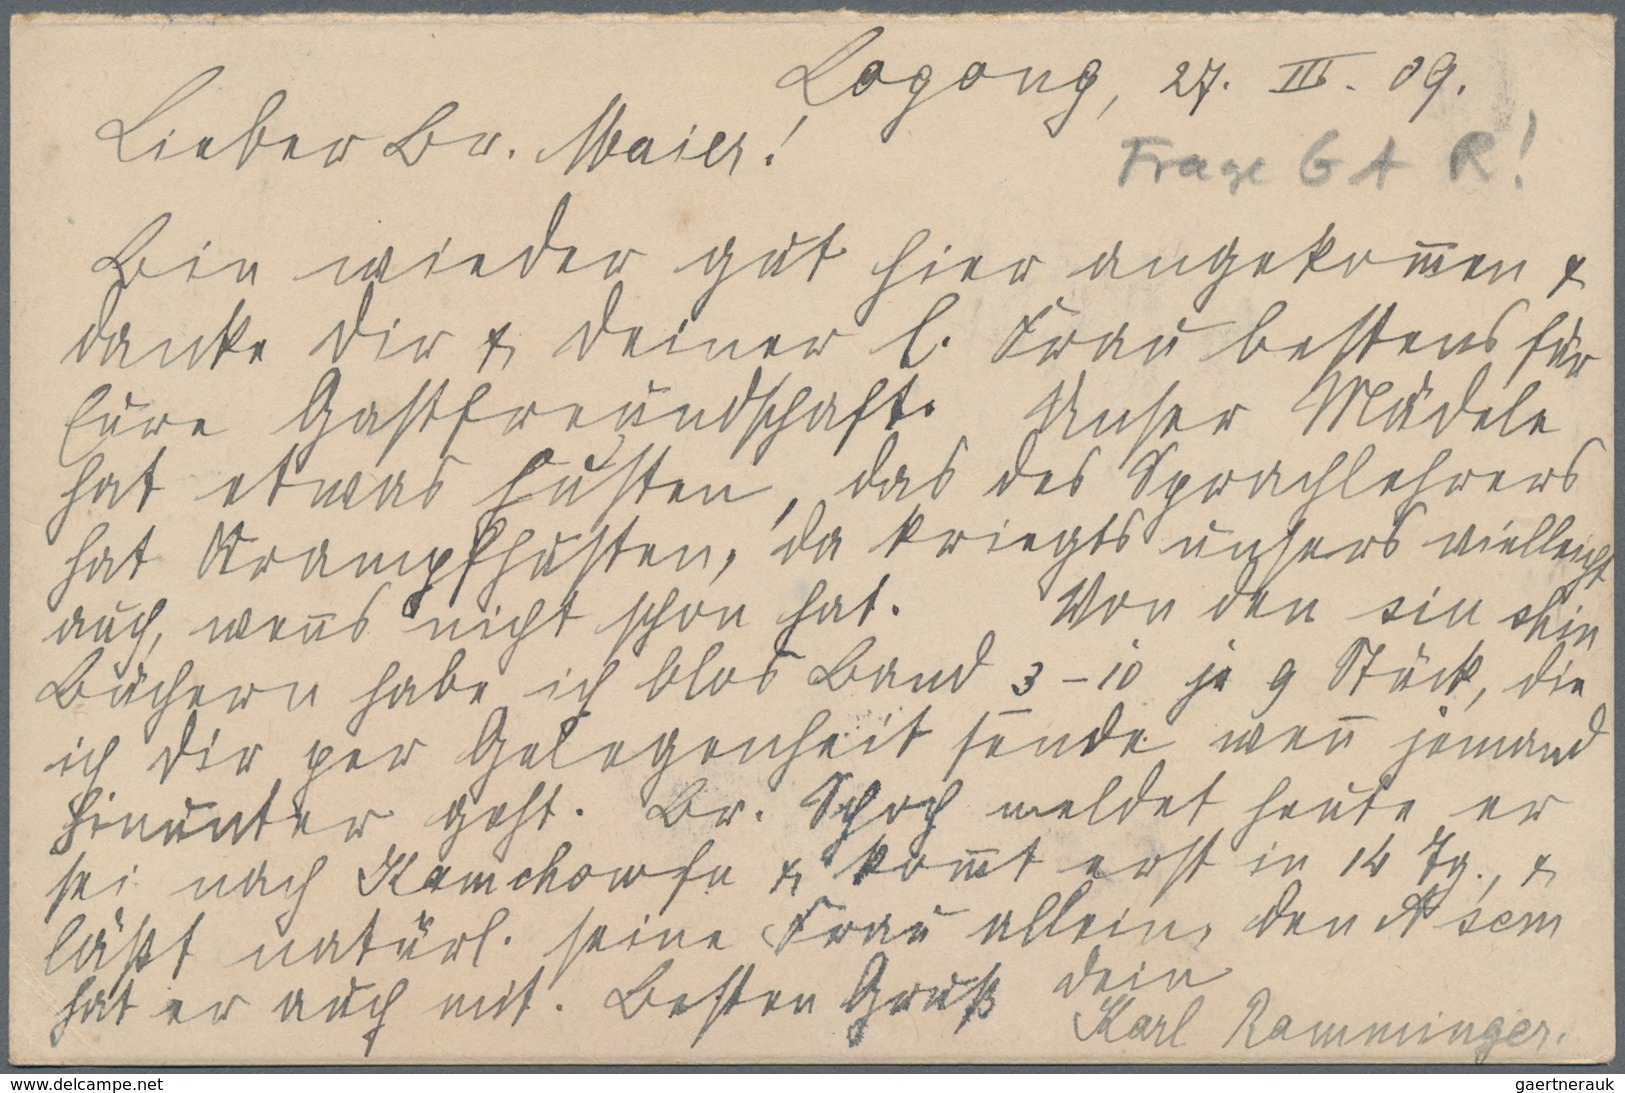 Logong, 27. III. 09.
Lieber Br. Maier!
Frage G A R!
Bin wieder gut hier angekom̅en &
danke Dir & Deiner l. Frau bestens für
Eure Gastfreundschaft. Unser Mädele
hat etwas Husten, das des Sprachlehrers
hat Krampfhusten, da kriegts unsers vielleicht
auch, wen̅s nicht schon hat. Von den sin shin
Büchern habe ich blos Band 3 – 10 je 9 Stück, die
ich Dir per Gelegenheit sende wen̅ jemand
hinunter geht. Br. Schoch meldet heute er
sei nach Kamchowfu & kom̅t erst in 14 Tg., &
läßt natürl. seine Frau allein, den A sem
hat er auch mit. Besten Gruß Dein
Karl Ramminger.
www.delcampe.net
gaertnerauk